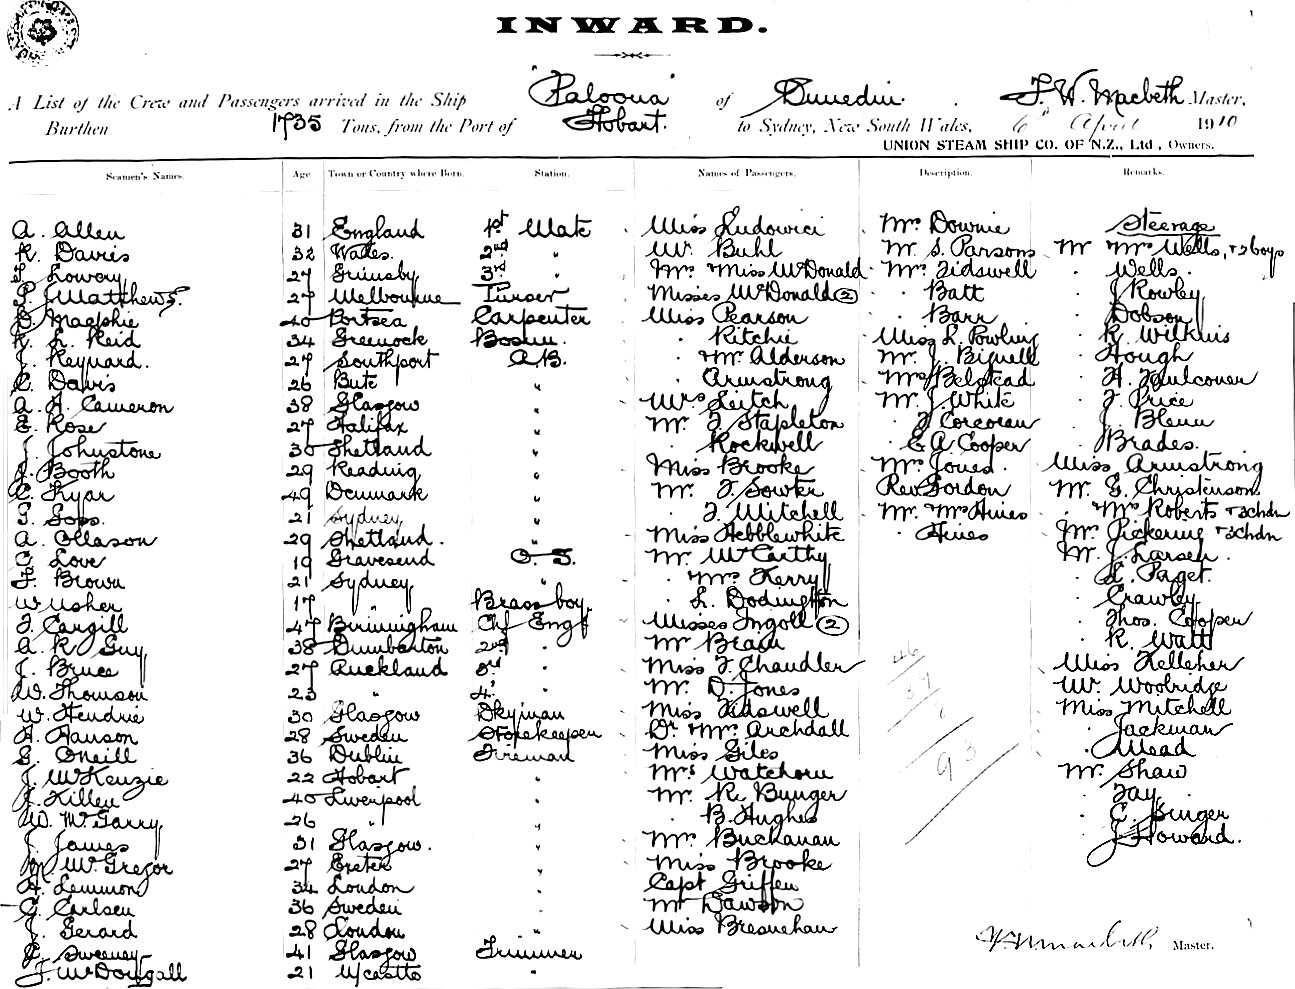 INWARD.
A List of the Crew and Passengers arrived in the Ship "Paloona" of Dunedin. F. W. Macbeth Master,
Burthen 1735 Tons, from the Port of Hobart. to Sydney, New South Wales, 6th April 1910
UNION STEAM SHIP CO. OF N.Z., Ltd, Owners.
Seamen's Names. Age Town or Country where Born. Station. Names of Passengers. Description. Remarks.
A. Allen 31 England 1st Mate Miss Ludowici Mrs Downie Steerage
R. Davis 32 Wales. 2nd " Mr. Buhl Mr. S. Parsons Mr Mrs Wells, + 2 boys
Lowery 27 Grimsby 3rd " Mrs Miss McDonald Mrs Tidswell Wells
Matthews. 27 Melbourne Purser Misses McDonald (2) Batt J Rowley
Magphie 40 Portsea Carpenter Miss Pearson Barr Dobson
R. L. Reid 34 Greenock Bosun. Ritchie Miss L. Powling R. Wilkins
J. Reynard. 27 Southport A.B. Mr Alderson Mr. J. Bignell Hough
C. Davis 26 Bute " Armstrong Mrs Belstead H. Faulconer
A. H. Cameron 38 Glasgow " Mrs Leitch Mr. J. White J. Price
E. Rose 27 Halifax " Mr. J. Stapleton J Corcoran J. Blenn
J. Johnstone 30 Shetland " Rockwell E A Cooper Brades.
Booth 29 Reading " Miss Brooke Mrs Jones. Miss Armstrong
C. Fryar 49 Denmark " Mr. J. Sowter Rev. Gordon Mr. G. Christenson
S. Goss. 21 Sydney " J. Mitchell Mr. Mrs Hines Mrs Roberts + 3 chdn
A. Ollason 29 Shetland. " Miss Hebblewhite Hines Mr. Pickering + 3 chdn
C. Love 19 Gravesend O. S. Mr. McCarthy Mr. J. Larsen.
F. Brown 21 Sydney " Mrs Kerry L. Paget.
W Usher 17 " Brass boy. L. Dodington Crawley
J. Cargill 47 Birmingham Chf Engr Misses Ingoll (2) Thos. Cooper
A. R. Guy 38 Dumbarton 2nd " Mr Brain R. Watt
J. Bruce 27 Auckland 3rd " Miss J. Chandler 46 Miss Kelleher
W. Thomson 23 " 4th " Mr. D. Jones 39 Mr. Woolridge
W. Hendrie 30 Glasgow Dkyman Miss Tidswell Miss Mitchell
H. Hanson 28 Sweden Storekeeper Dr. Mrs Archdall Jackman
G. Oneill 36 Dublin Fireman Miss Giles 93 Mead
J. McKenzie 22 Hobart " Mrs Watchorn Mr. Shaw
J. Killen 40 Liverpool " Mr. R. Bunger Fay
W. McGarry 26 " " B. Hughes C. Singer
J. James 31 Glasgow. " Mr. Buchanan J Howard.
McGregor 27 Exeter " Miss Brooke
H. Lemmon 34 London " Capt Griffen
C. Carlsen 36 Sweden " Mr Dawson
J. Gerard 28 London " Miss Bresnehan
C. Sweeney 41 Glasgow Trimmer Macbeth Master.
J. McDougall 21 N/castle "